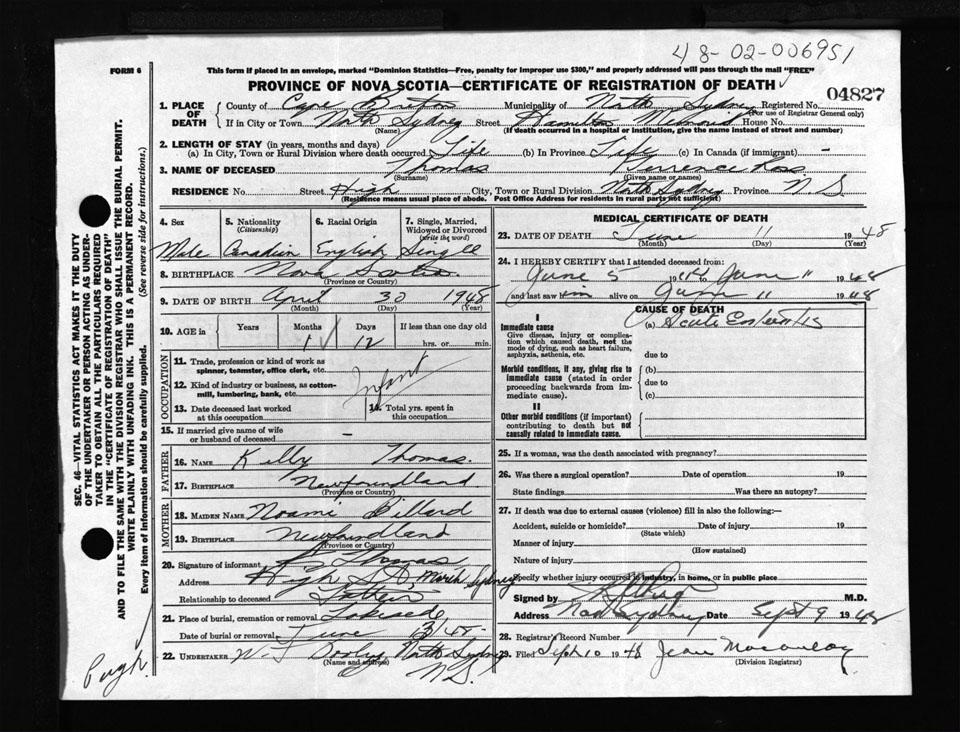 48-02-006951
FORM 6
This form if placed in an envelope, marked "Dominion Statistics—Free, penalty for improper use $300," and properly addressed will pass through the mail "FREE"
PROVINCE OF NOVA SCOTIA—CERTIFICATE OF REGISTRATION OF DEATH
04827
1. PLACE OF DEATH
County of Cape Breton Municipality of North Sydney Registered No.
(For use of Registrar General only)
If in City or Town North Sydney Street Hamilton Memorial House No.
(Name) (If death occurred in a hospital or institution, give the name instead of street and number)
2. LENGTH OF STAY (in years, months and days)
(a) In City, Town or Rural Division where death occurred Life (b) In Province Life (c) In Canada (if immigrant) -
3. NAME OF DECEASED Thomas Ross
(Surname) (Given name or names)
RESIDENCE No. Street High City, Town or Rural Division North Sydney Province N S
(Residence means usual place of abode. Post Office Address for residents in rural parts not sufficient)
4. Sex Male
5. Nationality (Citizenship) Canadian
6. Racial Origin English
7. Single, Married, Widowed or Divorced (write the word) Single
8. BIRTHPLACE Nova Scotia
(Province or Country)
9. DATE OF BIRTH April 30 1948
(Month) (Day) (Year)
10. AGE in Years Months Days If less than one day old
1 12 hrs. or min.
OCCUPATION
11. Trade, profession or kind of work as spinner, teamster, office clerk, etc.
12. Kind of industry or business, as cotton-mill, lumbering, bank, etc.
Infant
13. Date deceased last worked at this occupation
14. Total yrs. spent in this occupation
15. If married give name of wife or husband of deceased -
FATHER
16. NAME Kelly Thomas
17. BIRTHPLACE Newfoundland
(Province or Country)
MOTHER
18. MAIDEN NAME Noami Billard
19. BIRTHPLACE Newfoundland
(Province or Country)
20. Signature of informant Thomas
Address High St North Sydney
Relationship to deceased Father
21. Place of burial, cremation or removal Lakeside
Date of burial or removal June /48
22. UNDERTAKER W. J Dooley, North Sydney
(Name and address)
N S.
MEDICAL CERTIFICATE OF DEATH
23. DATE OF DEATH June 11 1948
(Month) (Day) (Year)
24. I HEREBY CERTIFY that I attended deceased from:
June 5 19 to June 11 1948
and last saw him alive on June 11 1948
CAUSE OF DEATH
I
Immediate cause (a) Acute Enteritis
Give disease, injury or complication which caused death, not the mode of dying, such as heart failure, asphyxia, asthenia, etc.
due to
Morbid conditions, if any, giving rise to immediate cause (stated in order proceeding backwards from immediate cause).
(b)
due to
(c)
II
Other morbid conditions (if important) contributing to death but not causally related to immediate cause.
25. If a woman, was the death associated with pregnancy?
26. Was there a surgical operation? Date of operation 19
State findings Was there an autopsy?
27. If death was due to external causes (violence) fill in also the following:—
Accident, suicide or homicide? Date of injury 19
(State which)
Manner of injury
(How sustained)
Nature of injury
Specify whether injury occurred in industry, in home, or in public place
Signed by M.D.
Address North Sydney Date Sept 9 1948
28. Registrar's Record Number
29. Filed Sept 10 1948 Jean Macaulay
(Division Registrar)
SEC. 46—VITAL STATISTICS ACT MAKES IT THE DUTY
OF THE UNDERTAKER OR PERSON ACTING AS UNDER-
TAKER TO OBTAIN ALL THE PARTICULARS REQUIRED
IN THE "CERTIFICATE OF REGISTRATION OF DEATH"
AND TO FILE THE SAME WITH THE DIVISION REGISTRAR WHO SHALL ISSUE THE BURIAL PERMIT.
WRITE PLAINLY WITH UNFADING INK. THIS IS A PERMANENT RECORD.
Every item of information should be carefully supplied. (See reverse side for instructions.)
Pugh.